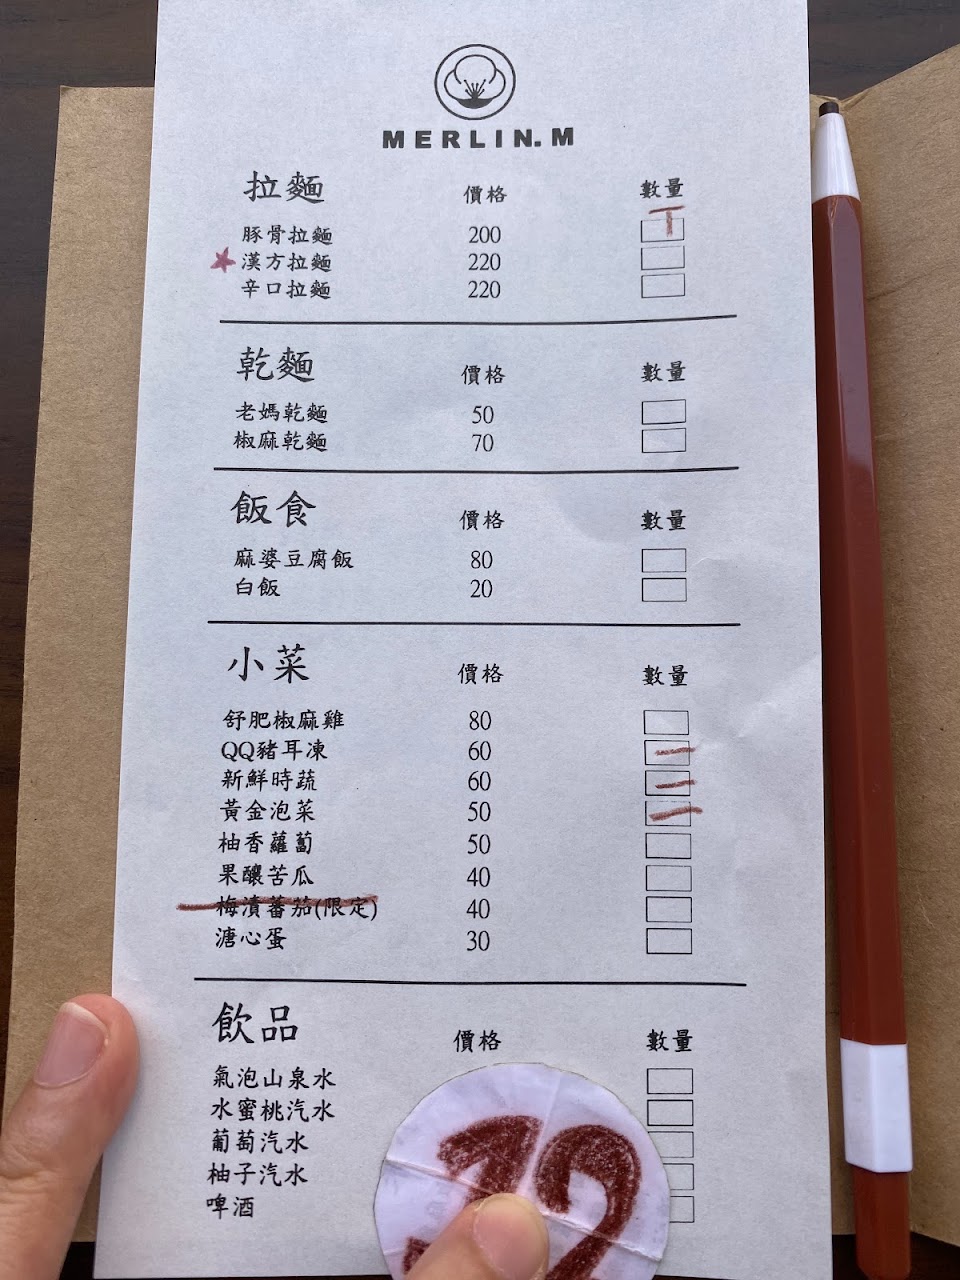 MERLIN.M
拉麵 價格 數量
豚骨拉麵 200 T
漢方拉麵 220
辛口拉麵 220
乾麵 價格 數量
老媽乾麵 50
椒麻乾麵 70
飯食 價格 數量
麻婆豆腐飯 80
白飯 20
小菜 價格 數量
舒肥椒麻雞 80
QQ豬耳凍 60 一
新鮮時蔬 60 一
黃金泡菜 50 一
柚香蘿蔔 50
果釀苦瓜 40
梅漬蕃茄(限定) 40
溏心蛋 30
飲品 價格 數量
氣泡山泉水
水蜜桃汽水
葡萄汽水
柚子汽水
啤酒